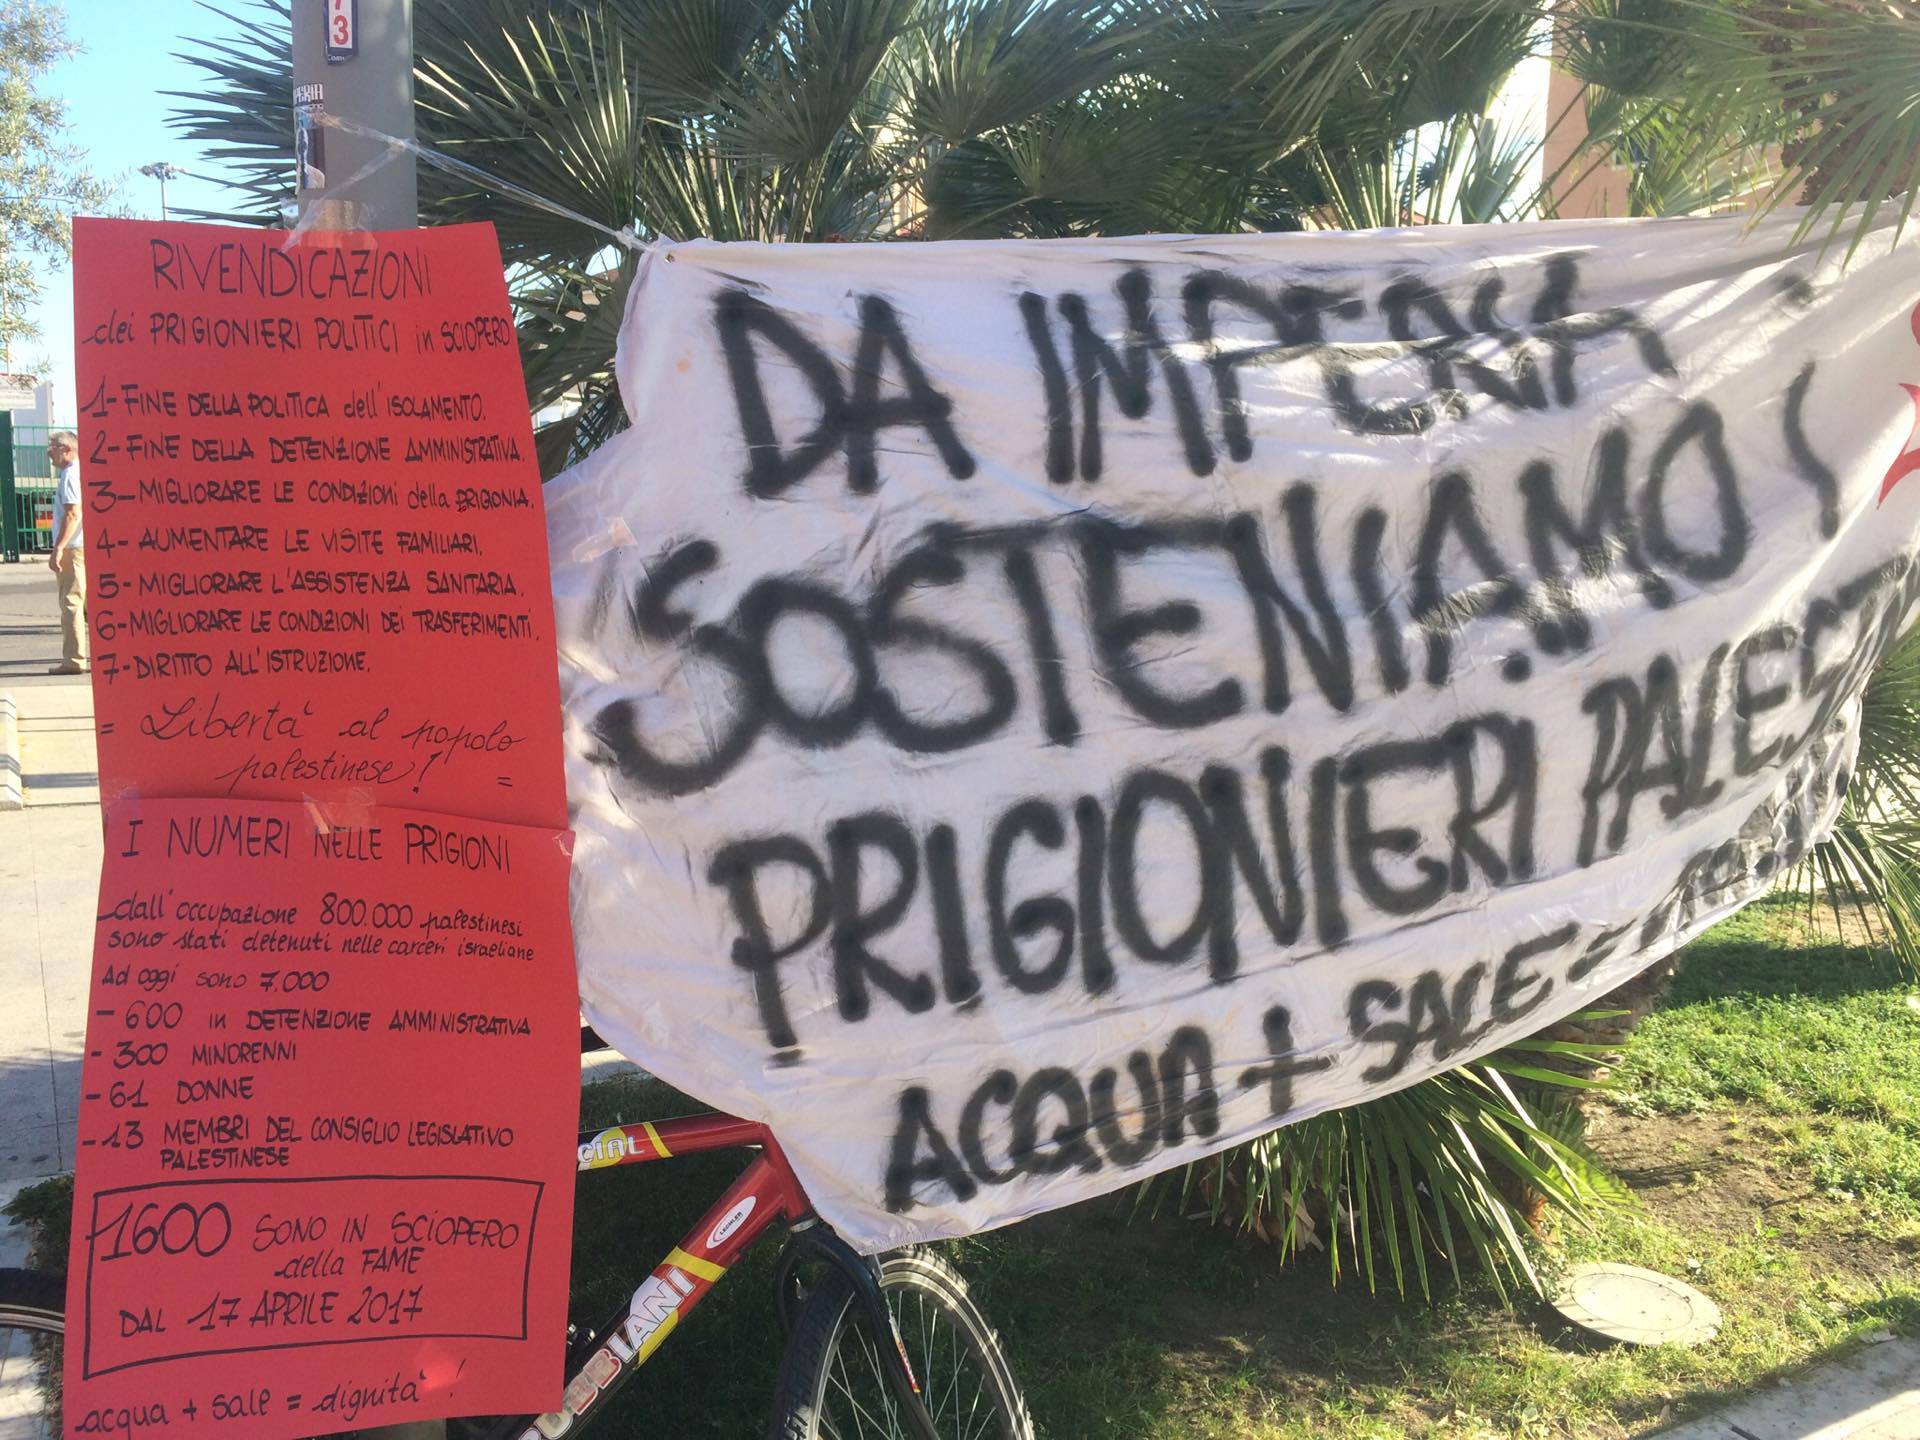 73
Com
RIVENDICAZIONI
dei PRIGIONIERI POLITICI in SCIOPERO
1-FINE DELLA POLITICA dell'ISOLAMENTO.
2-FINE DELLA DETENZIONE AMMINISTRATIVA.
3-MIGLIORARE LE CONDIZIONI della PRIGIONIA.
4-AUMENTARE LE VISITE FAMILIARI.
5-MIGLIORARE L'ASSISTENZA SANITARIA.
6-MIGLIORARE LE CONDIZIONI DEI TRASFERIMENTI.
7-DIRITTO ALL'ISTRUZIONE.
= Libertà al popolo
palestinese! =
I NUMERI NELLE PRIGIONI
dall'occupazione 800.000 palestinesi
sono stati detenuti nelle carceri israeliane
Ad oggi sono 7.000
- 600 in DETENZIONE AMMINISTRATIVA
- 300 MINORENNI
- 61 DONNE
- 13 MEMBRI DEL CONSIGLIO LEGISLATIVO
PALESTINESE
1600 SONO IN SCIOPERO
della FAME
DAL 17 APRILE 2017
acqua + sale = dignità!
DA IMPERIA
SOSTENIAMO I
PRIGIONIERI PALEST
ACQUA + SALE =
CIAL
LEGNLER
BIANI